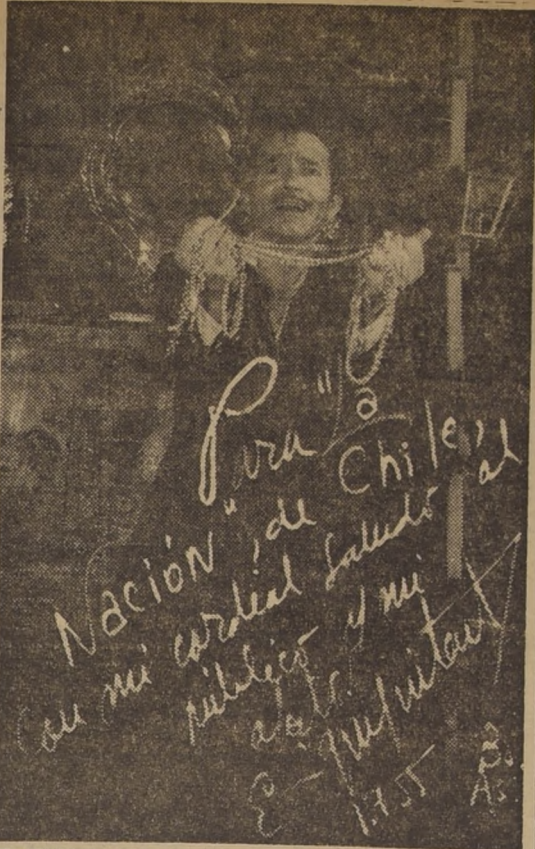 Para "a
Nación" de Chile,
con mi cordial saludo al
público y mi
E
1.955 Bs.
As.